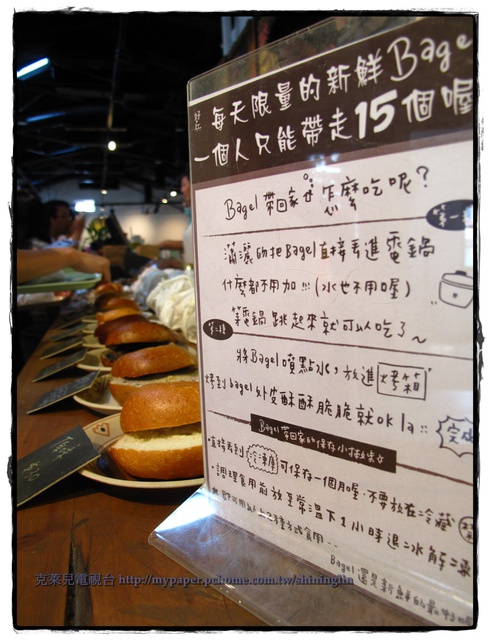 每天限量的新鮮Bage
一個人只能帶走15個喔
Bagel帶回家怎麼吃呢?
第一
瀟灑的把Bagel直接丟進電鍋
什麼都不用加!!!(水也不用喔)
等電鍋跳起來就可以吃了~
第二種
將Bagel噴點水,放進烤箱
烤到bagel外皮酥酥脆脆就ok la
Bagel帶回家的保存小技
直接丟到冷凍庫可保存一個月喔,不要放在冷藏
調理食用前放至常溫下1小時退冰解凍
Bagel還是新鮮的最好
克萊兒電視台 http://mypaper.pchome.com.tw/shininglin